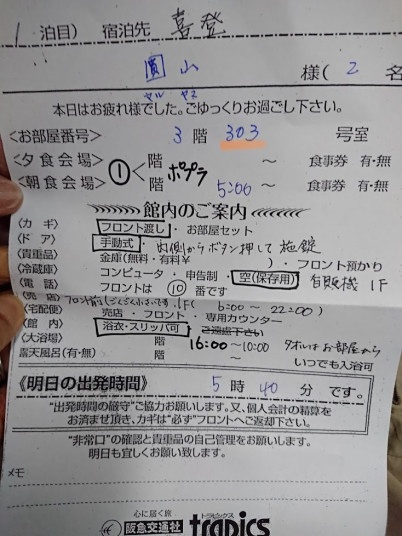 1 泊目) 宿泊先 喜登
圓山 様( 2 名
マルヤマ
本日はお疲れ様でした。ごゆっくりお過ごし下さい。
<お部屋番号> 3 階 303 号室
<夕食会場> ① 階 ポプラ ～ 食事券 有・無
<朝食会場> 階 5:00 ～ 食事券 有・無
館内のご案内
<カギ> フロント渡し・お部屋セット
<ドア> 手動式・内側からボタン押して施錠
<貴重品> 金庫(無料・有料¥ )・フロント預かり
<冷蔵庫> コンピュータ・申告制・空(保存用) 自販機 1F
<電話> フロントは ⑩ 番です
<売店> 1F ( 6:00 ～ 22:00 )
<宅配便> 売店・フロント・専用カウンター
<館内> 浴衣・スリッパ可 ご遠慮下さい
<大浴場> 階 16:00～10:00 タオルはお部屋から
露天風呂(有・無) 階 ～ いつでも入浴可
《明日の出発時間》 5 時 40 分 です。
"出発時間の厳守"ご協力お願いします。又、個人会計の精算を
お済ませ頂き、カギは"必ず"フロントへご返却下さい。
"非常口"の確認と貴重品の自己管理をお願いします。
明日も宜しくお願い致します。
メモ
心に届く旅 トラピックス
阪急交通社 trapics